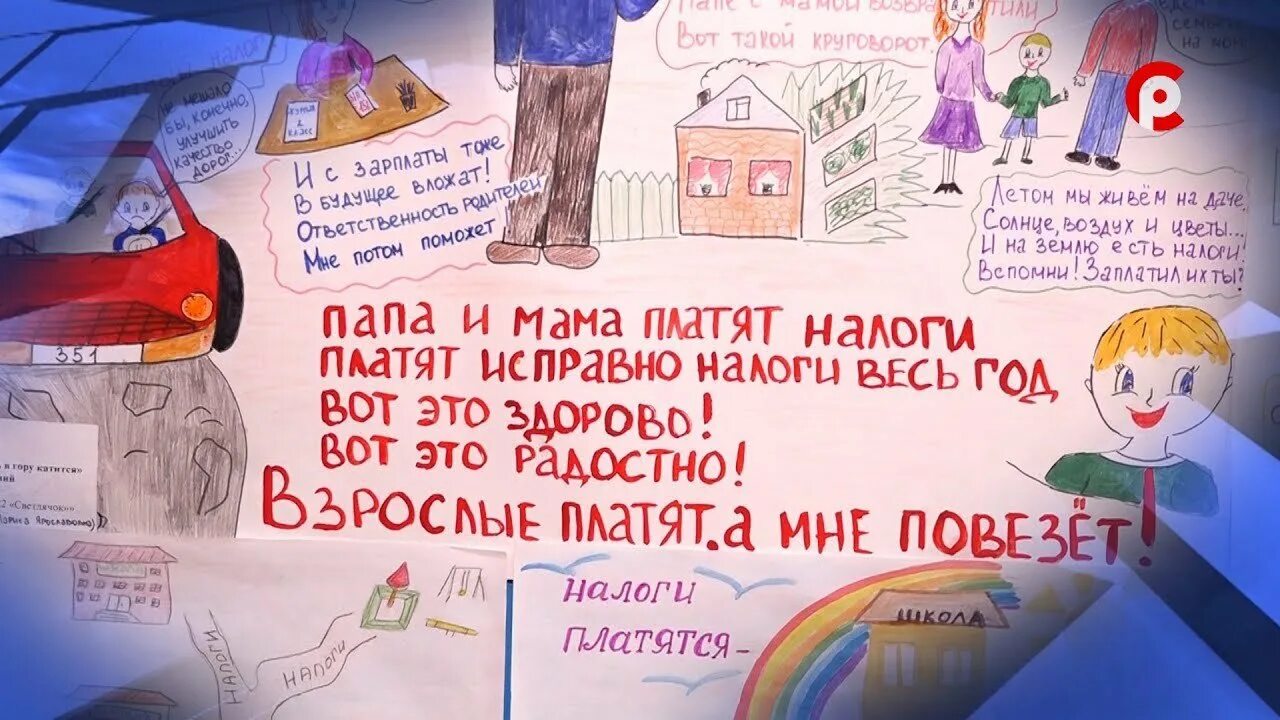 Папе с мамой возвратили
Вот такой круговорот.
налог
не мешало
бы, конечно,
улучшить
качество
дорог...
класс
И с зарплаты тоже
В будущее вложат!
Ответственность родителей
Мне потом поможет
Летом мы живём на даче,
Солнце, воздух и цветы...
И на землю есть налоги.
Вспомни! Заплатил их ты?
папа и мама платят налоги
платят исправно налоги весь год
Вот это здорово!
Вот это радостно!
Взрослые платят.а мне повезёт!
351
в гору катится»
2 «Светлячок»»
налоги
налоги
налоги
платятся-
школа